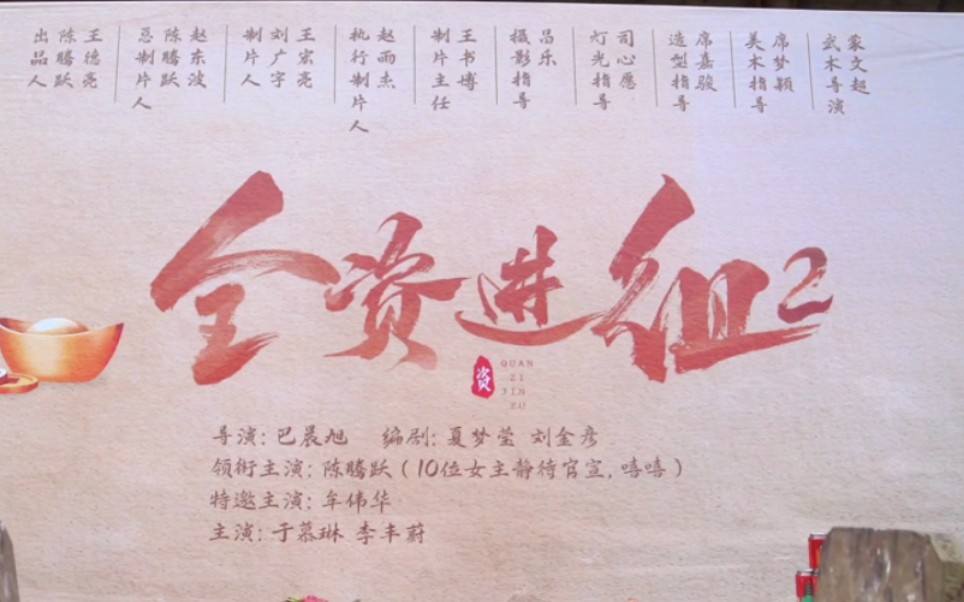 出品人 陈腾跃 王德亮
总制片人 陈腾跃 赵东波
制片人 刘广宇 王宏亮
执行制片人 赵雨杰
制片主任 王书博
摄影指导 吕乐
灯光指导 司心愿
造型指导 席嘉骏
美术指导 席梦颖
武术导演 蒙文超
全资进组2
资
QUAN
ZI
JIN
ZU
导演: 巴晨旭 编剧: 夏梦莹 刘金彦
领衔主演: 陈腾跃 (10位女主静待官宣, 嘻嘻)
特邀主演: 牟伟华
主演: 于慕琳 李丰蔚